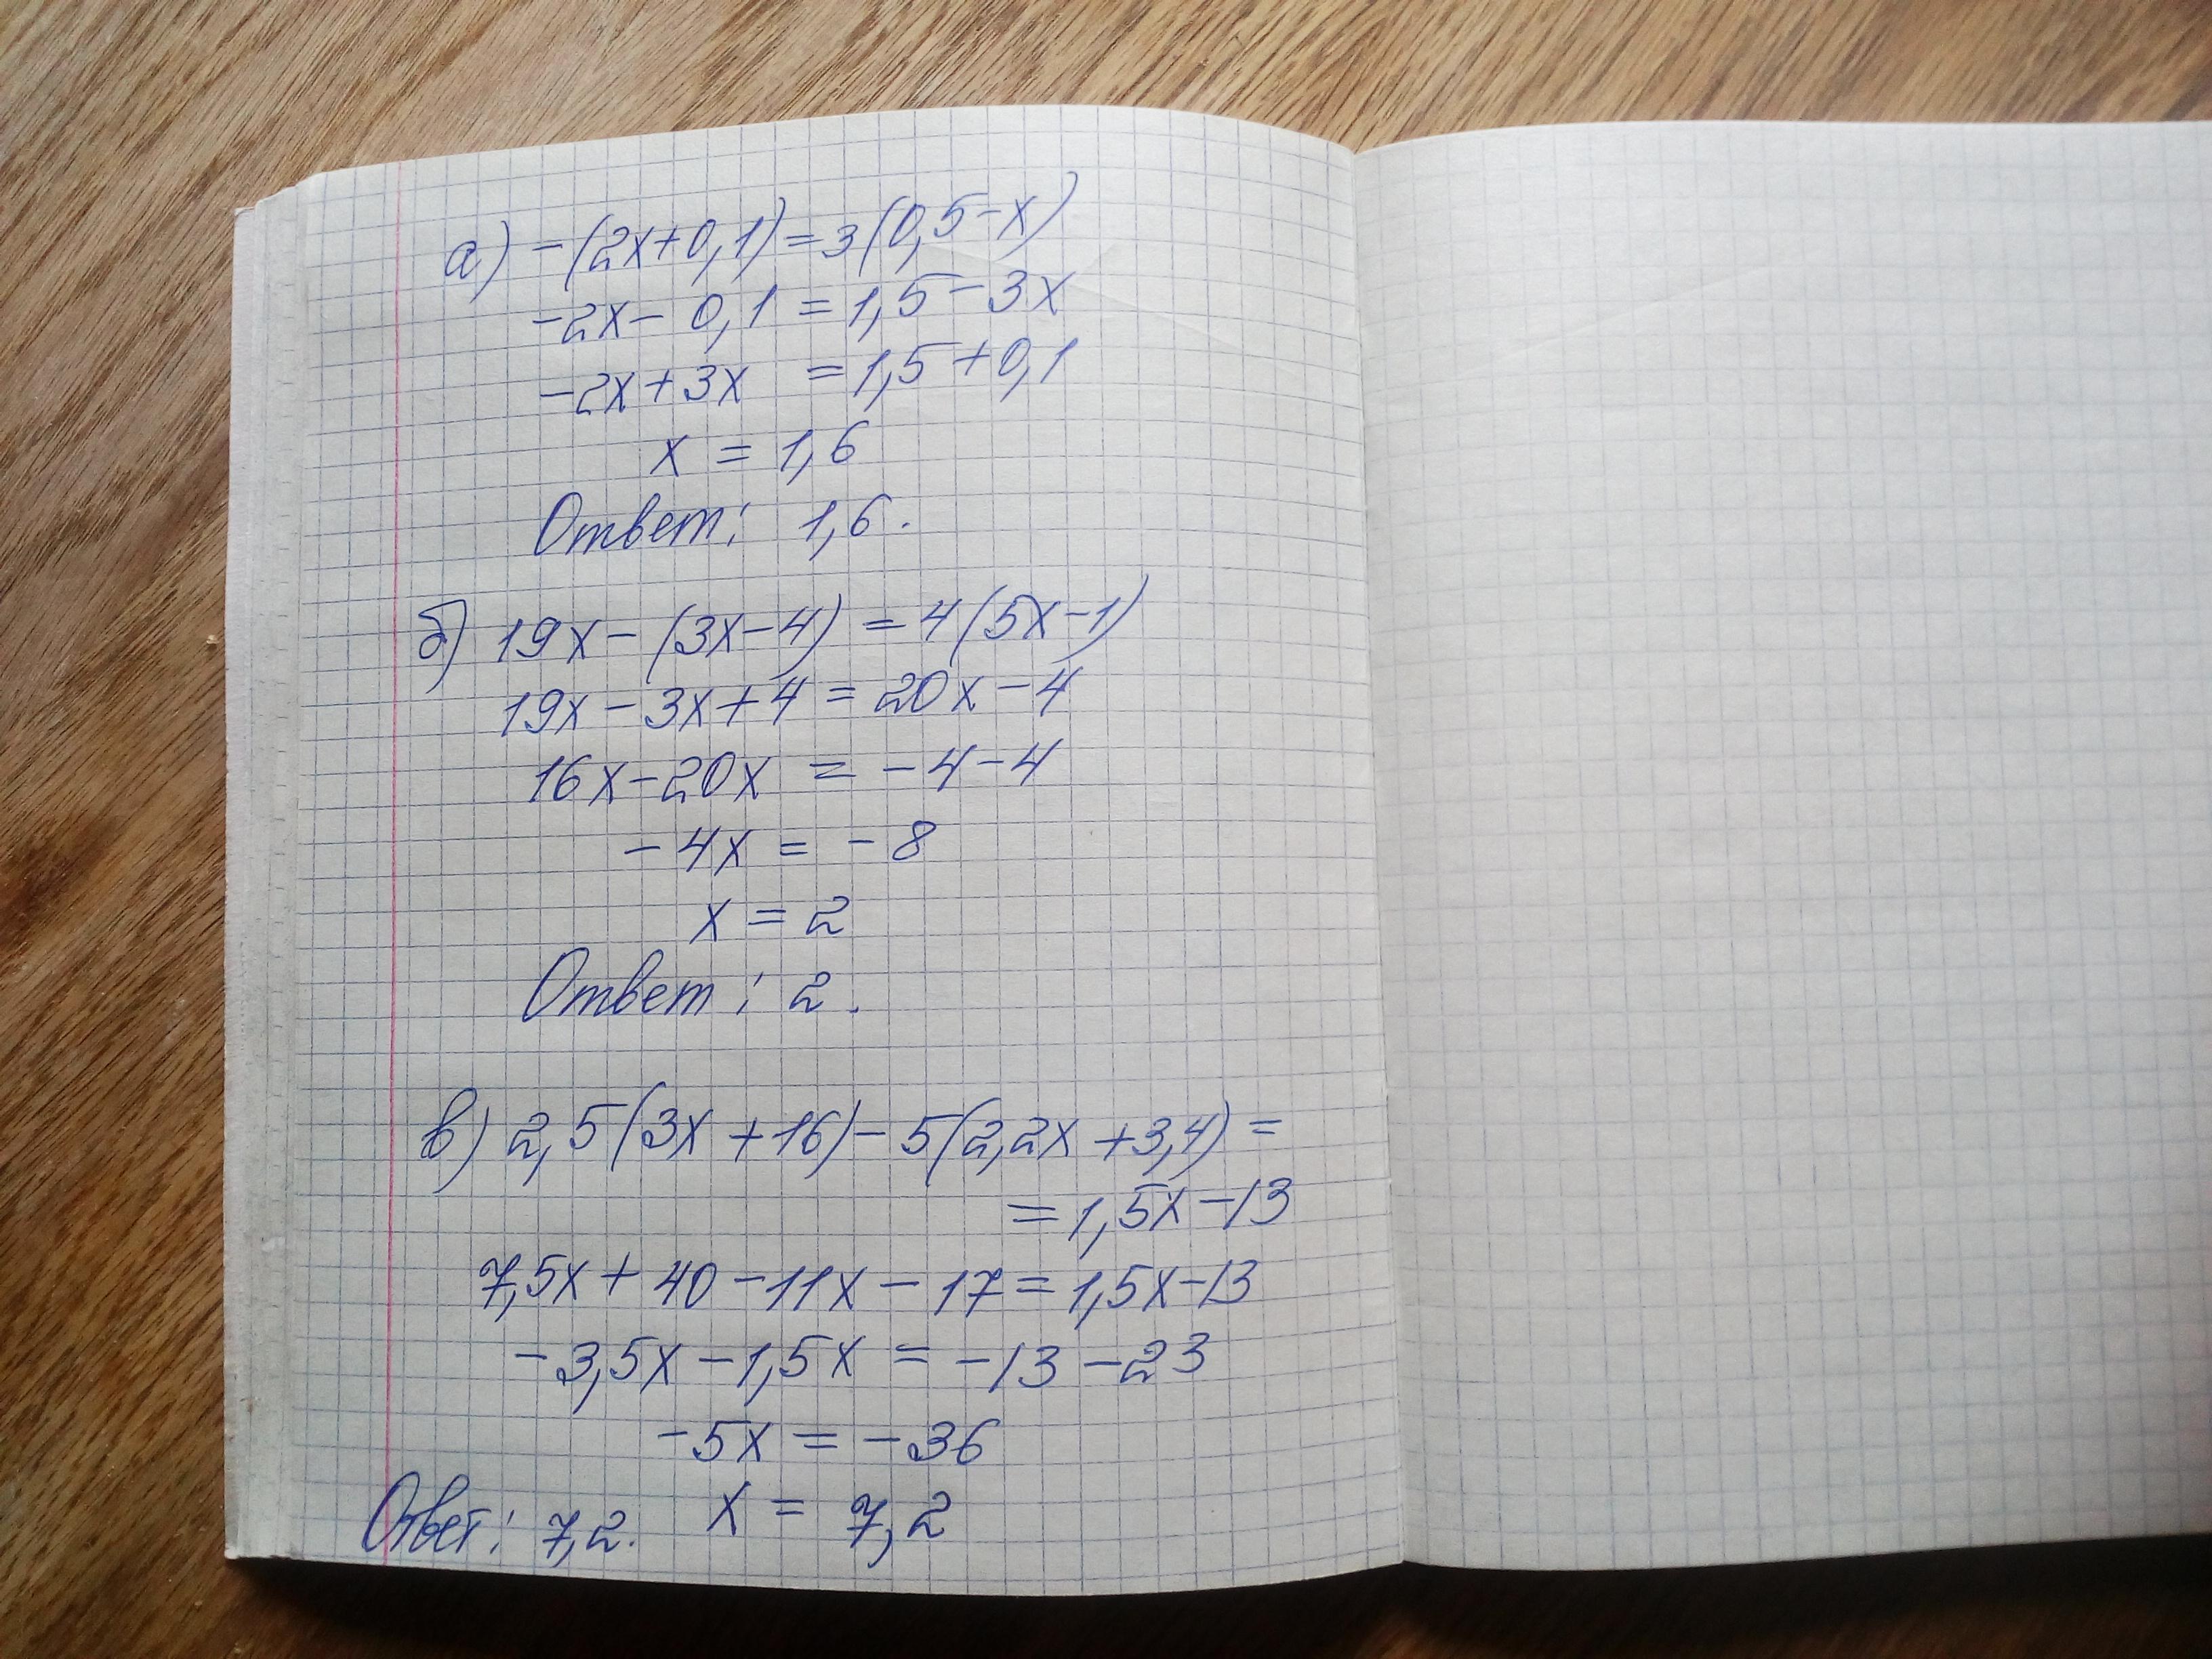 а) -(2x+0,1)=3(0,5-x)
-2x-0,1=1,5-3x
-2x+3x=1,5+0,1
x=1,6
Ответ: 1,6.
б) 19x-(3x-4)=4(5x-1)
19x-3x+4=20x-4
16x-20x=-4-4
-4x=-8
x=2
Ответ: 2.
в) 2,5(3x+16)-5(2,2x+3,4)=
=1,5x-13
7,5x+40-11x-17=1,5x-13
-3,5x-1,5x=-13-23
-5x=-36
x=7,2
Ответ: 7,2.